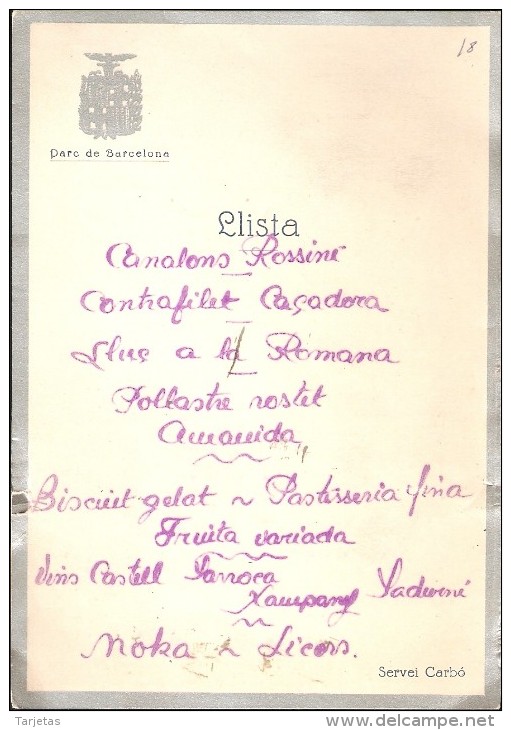 18
Parc de Barcelona
Llista
Canalons Rossini
Contrafilet Caçadora
Lluç a la Romana
Pollastre rostit
Amanida
Biscuit gelat ~ Pastisseria fina
Fruita variada
Vins Castell Larroca
Xampany
Moka ~ Licors.
Servei Carbó
Tarjetas
www.delcampe.net